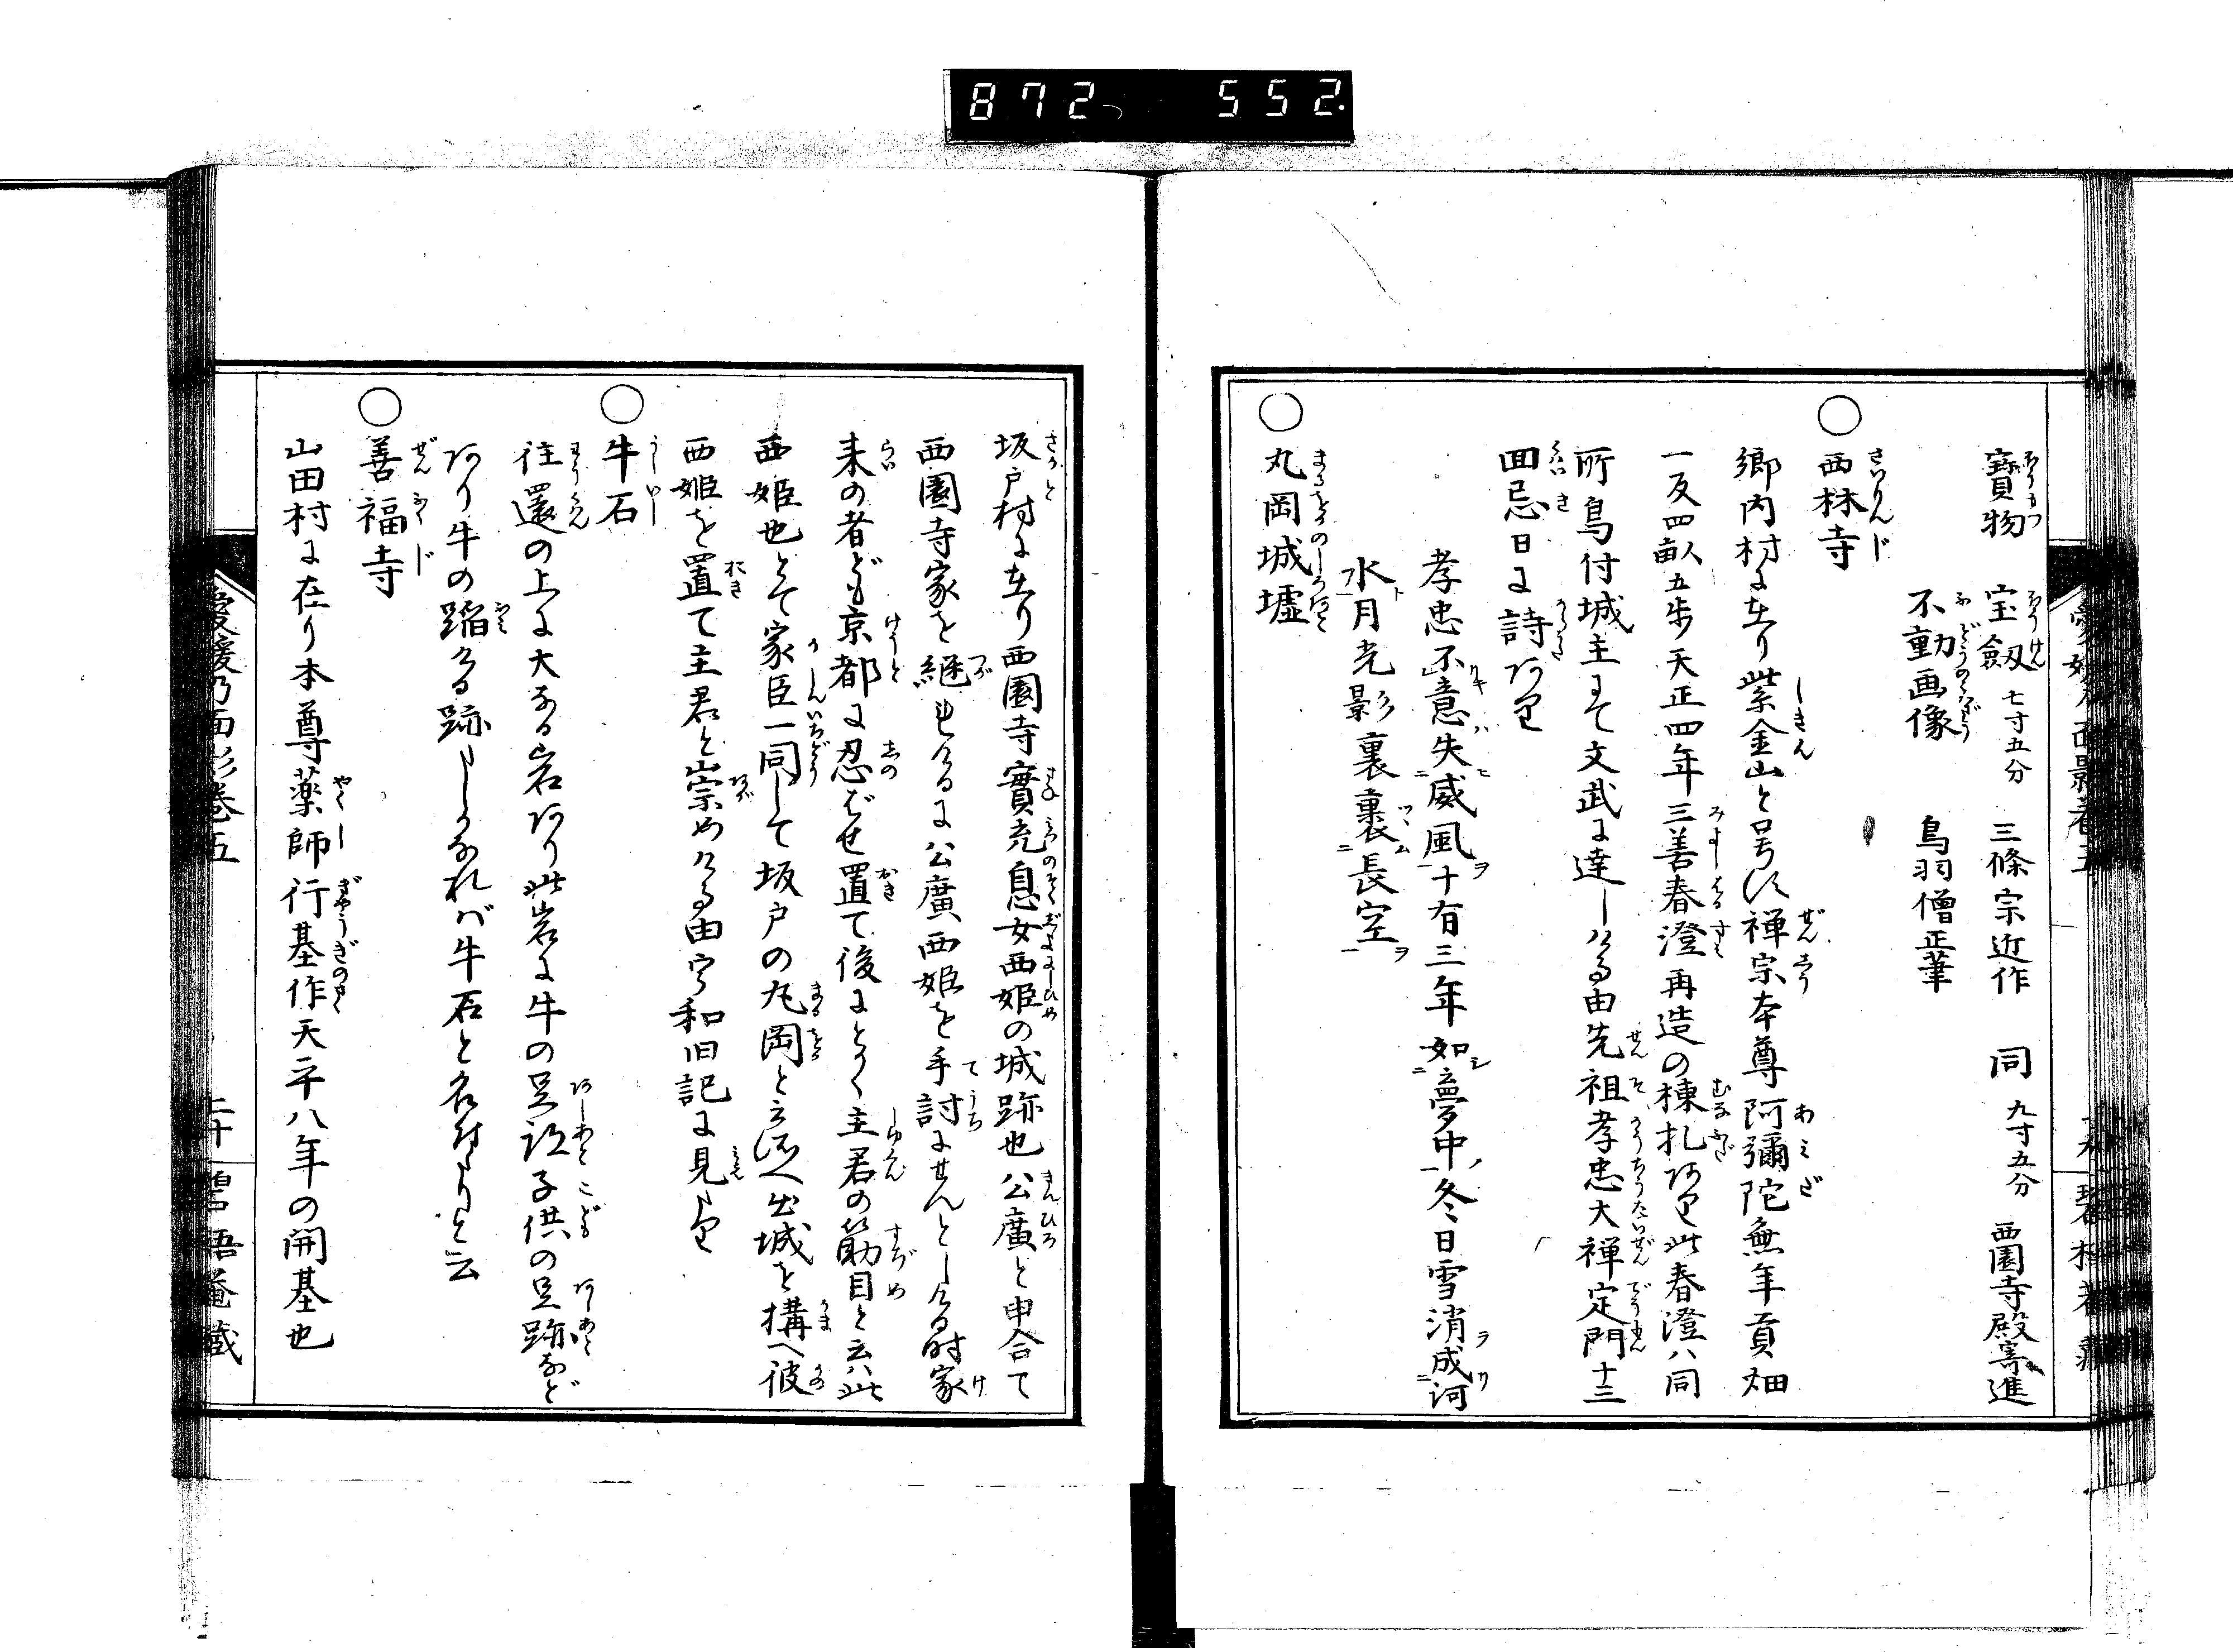 872 552
寶物 宝劔 七寸五分 三條宗近作 同 九寸五分 西園寺殿寄進
不動画像 鳥羽僧正筆
○西林寺
郷内村に在り紫金山と号す禅宗本尊阿彌陀無年貢畑
一反四畝五歩天正四年三善春澄再造の棟札あり此春澄ハ同
所鳥付城主にて文武に達しける由先祖孝忠大禅定門十三
回忌日に詩あり
孝忠不意失威風十有三年如夢中冬日雪消成河
水月光影裏裹長空
○丸岡城墟
坂戸村に在り西園寺實充息女西姫の城跡也公廣と申合て
西園寺家を継れけるに公廣西姫を手討にせんとしける時家
来の者ども京都に忍ばせ置て後にとかく主君の筋目と云ハ此
西姫也とて家臣一同して坂戸の丸岡と云所へ出城を構へ彼
西姫を置て主君と崇めける由宇和旧記に見えたり
○牛石
往還の上に大なる岩あり此岩に牛の足跡子供の足跡など
あり牛の踏ける跡したしかなれバ牛石と名付たりと云
○善福寺
山田村に在り本尊薬師行基作天平八年の開基也
愛媛乃面影巻五